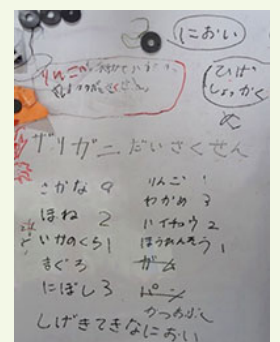 におい
ひげ
しょっかく
ザリガニだいさくせん
さかな 9
ほね 2
いかのくら 1
まぐろ
にぼし 3
りんご 1
わかめ 3
ハイチュウ 2
ほうれんそう 1
ガム
パン
かつおぶし
しげきてきなにおい